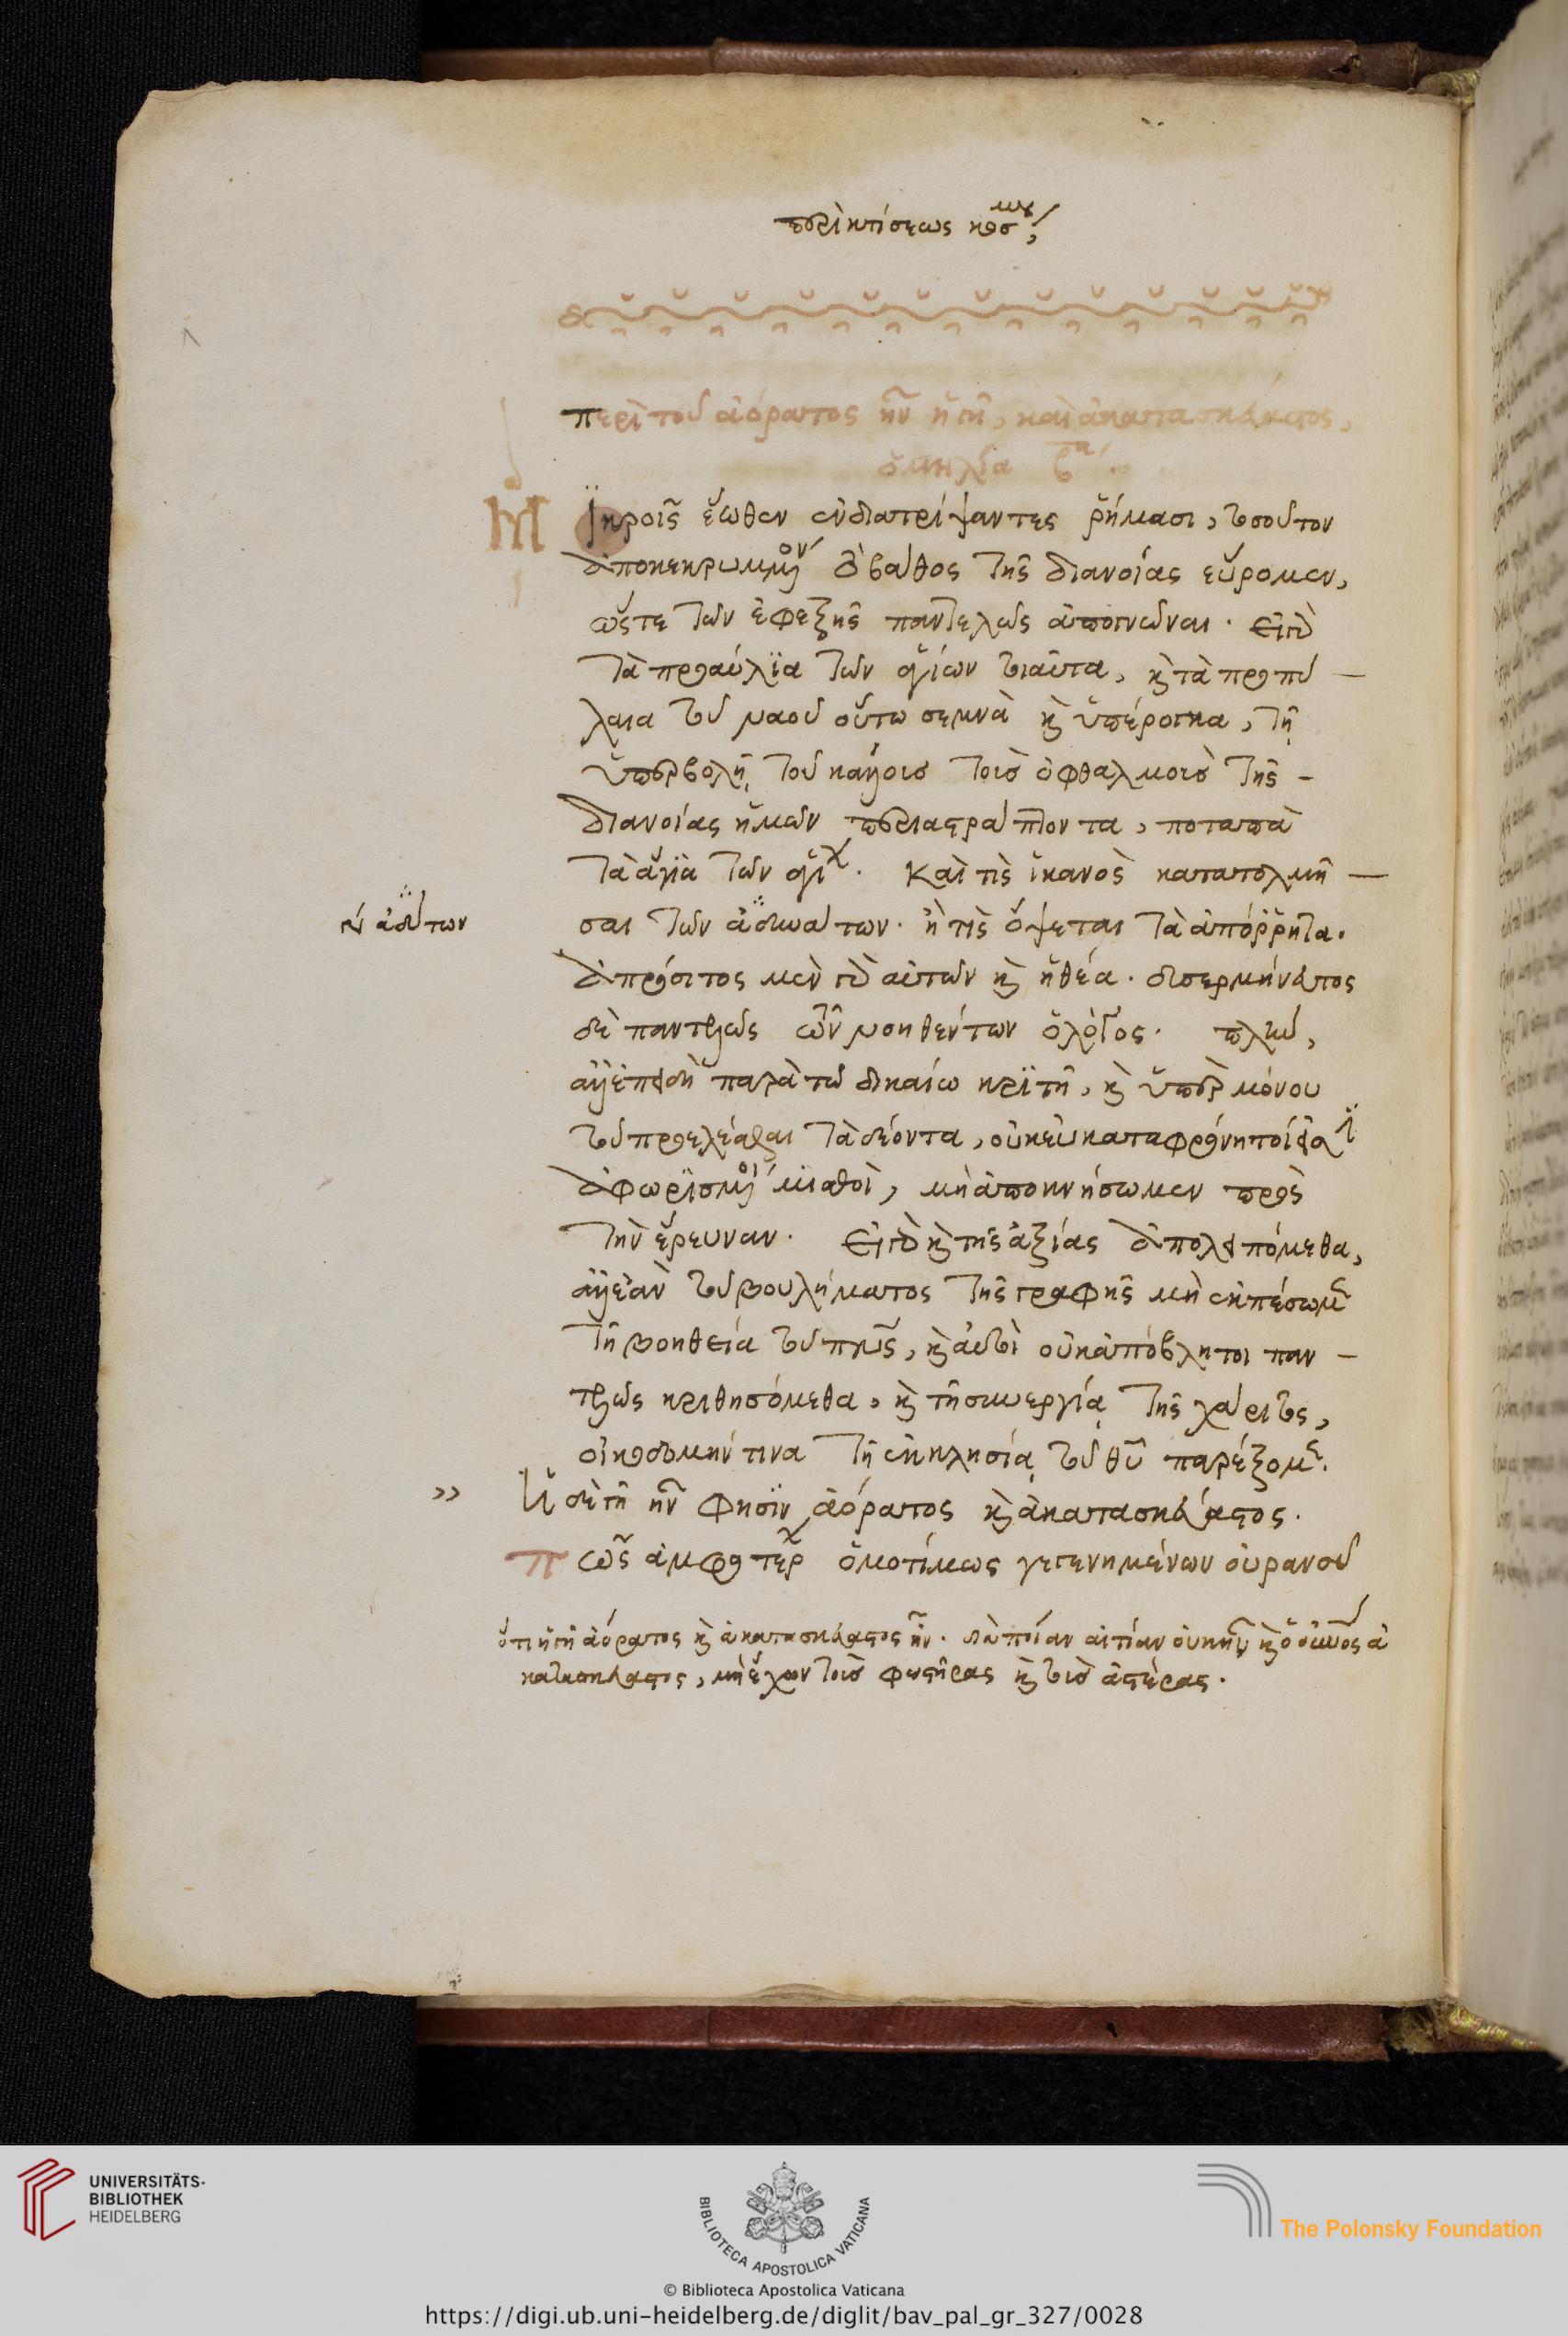 περὶ κτίσεως κόσμου
περὶ τοῦ ἀόρατος ἦν ἡ γῆ, καὶ ἀκατασκεύαστος,
ὁμιλία β
Μϊκροῖς ἕωθεν ἐνδιατρίψαντες ῥήμασι, τοσοῦτον
ἀποκεκρυμμένον τὸ βάθος τῆς διανοίας εὕρομεν,
ὥστε τῶν ἐφεξῆς παντελῶς ἀπογνῶναι. εἰ γὰρ
τὰ προαύλϊα τῶν ἁγίων τοιαῦτα, καὶ τὰ προπύ
λαια τοῦ ναοῦ οὕτω σεμνὰ καὶ ὑπέρογκα, τῇ
ὑπερβολῇ τοῦ κάλλους τοὺς ὀφθαλμοὺς τῆς
διανοίας ἡμῶν περιαστράπτοντα, ποταπὰ
τὰ ἅγια τῶν ἁγίων. Καὶ τίς ἱκανὸς κατατολμῆ
ἀδύτων
σαι τῶν ἀδυνάτων. ἢ τίς ὄψεται τὰ ἀπόῤῥητα.
ἀπρόσιτος μὲν γὰρ αὐτῶν καὶ ἡ θέα. δυσερμήνευτος
δὲ παντελῶς τῶν νοηθέντων ὁ λόγος. πλὴν,
ἀλλ' ἐπειδὴ παρὰ τῷ δικαίῳ κρϊτῇ, καὶ ὑπὲρ μόνου
τοῦ προελέσθαι τὰ δέοντα, οὐκ εὐκαταφρόνητοί εἰσιν
ἀφωρϊσμένοι μϊσθοὶ, μὴ ἀποκνήσωμεν πρὸς
τὴν ἔρευναν. Εἰ γὰρ καὶ τῆς ἀξίας ἀπολειπόμεθα,
ἀλλ' ἐὰν τοῦ βουλήματος τῆς γραφῆς μὴ ἐκπέσωμεν
τῇ βοηθεία τοῦ πνς, καὶ αὐτοὶ οὐκ ἀπόβλητοι παν
τελῶς κριθησόμεθα, καὶ τῇ συνεργίᾳ τῆς χάριτος,
οἰκοδομήν τινα τῇ ἐκκλησίᾳ τοῦ θυ παρέξομεν.
» Ἡ δὲ γῆ ἦν φησϊν ἀόρατος καὶ ἀκατασκεύαστος.
πῶς ἀμφοτέρων ὁμοτίμως γεγενημένων οὐρανοῦ
ὅτι ἡ γῆ ἀόρατος καὶ ἀκατασκεύαστος ἦν. διὰ ποίαν αἰτίαν οὐκ ἦν καὶ ὁ οὐνος ἀ
κατασκεύαστος, μὴ ἔχων τοὺς φωστῆρας καὶ τοὺς ἀστέρας.
UNIVERSITÄTS-
BIBLIOTHEK
HEIDELBERG
BIBLIOTECA APOSTOLICA VATICANA
The Polonsky Foundation
© Biblioteca Apostolica Vaticana
https://digi.ub.uni-heidelberg.de/diglit/bav_pal_gr_327/0028